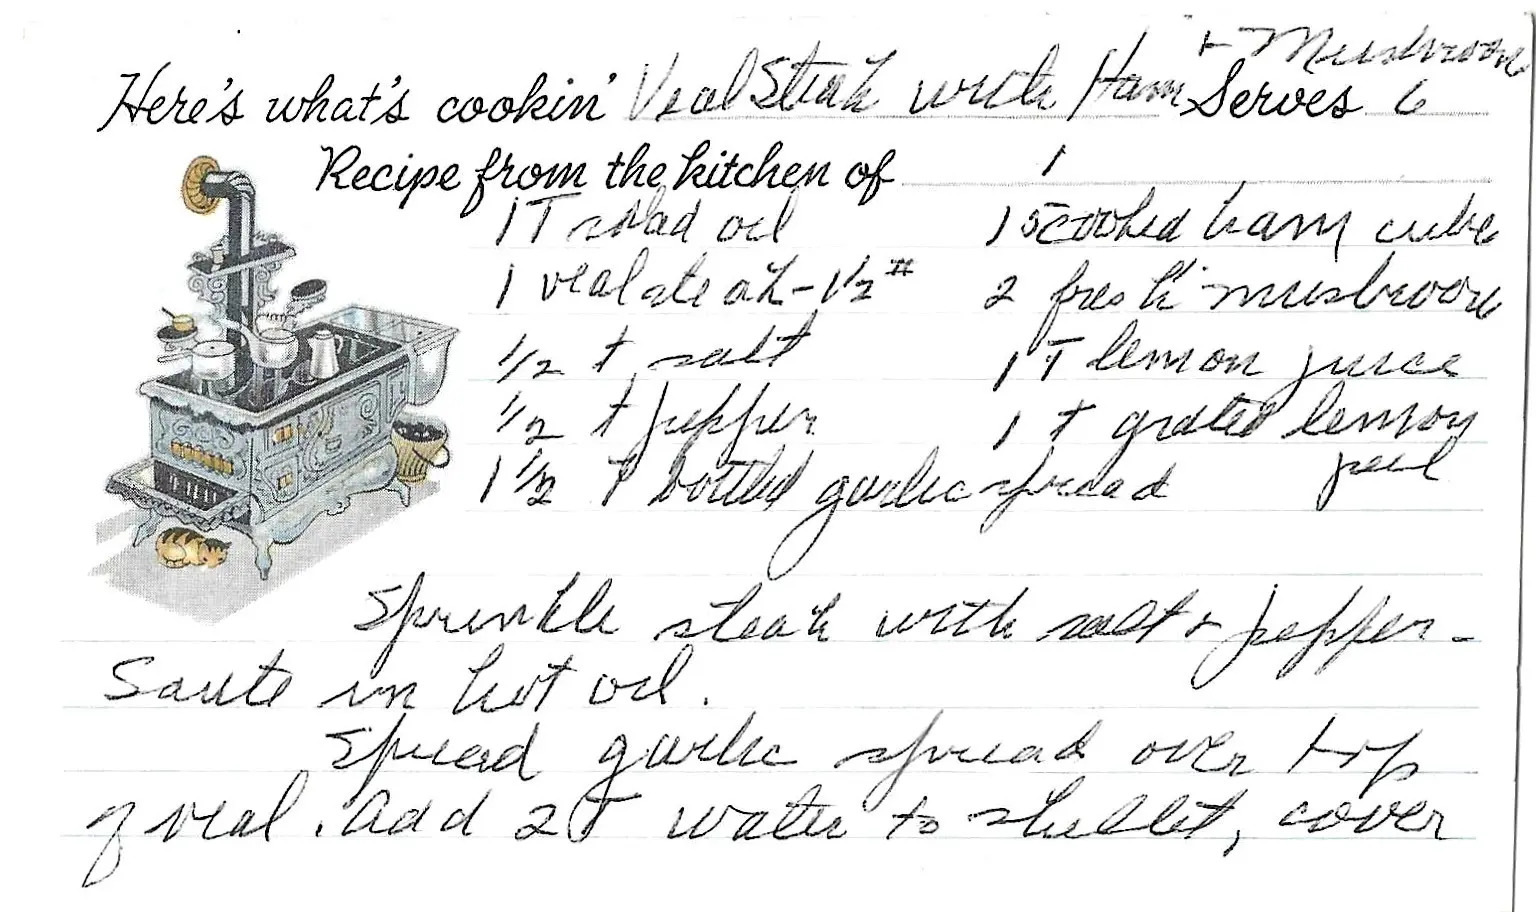 + Mushroom
Here's what's cookin' Veal Steak with Ham Serves 6
Recipe from the kitchen of
1 T salad oil
1 veal steak - 1 1/2 #
1/2 t salt
1/2 t pepper
1 1/2 T bottled garlic spread
1 cooked ham cube
2 fresh mushroom
1 T lemon juice
1 t grated lemon
peel
Sprinkle steak with salt + pepper -
Saute in hot oil.
Spread garlic spread over top
of veal. Add 2 T water to skillet, cover